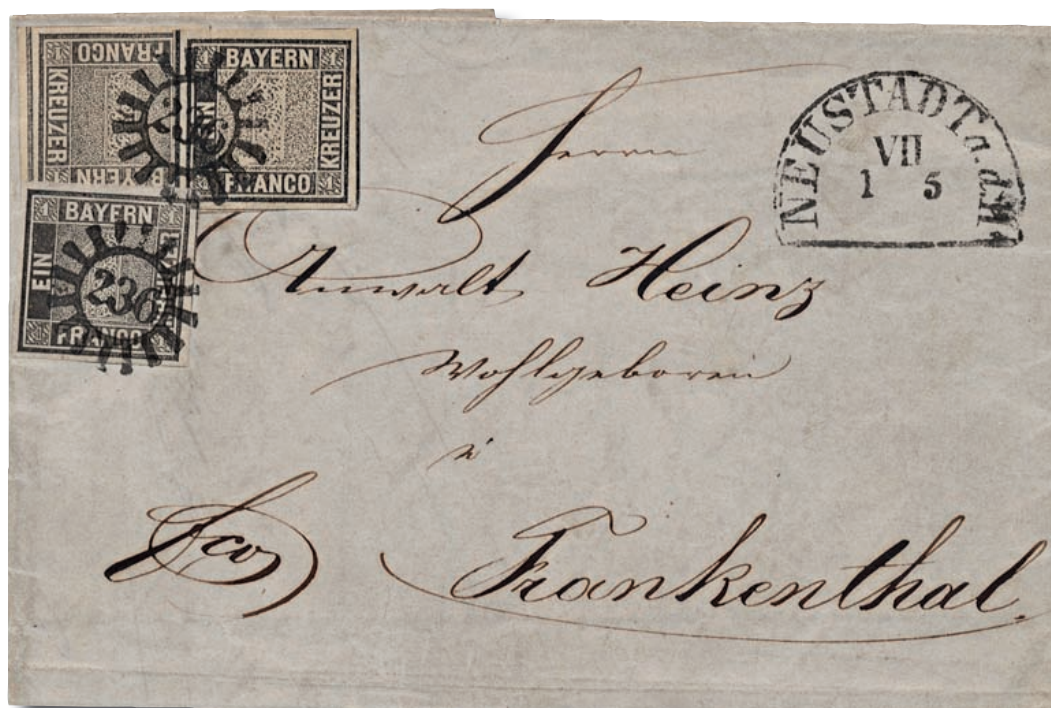 FRANCO
KREUZER
BAYERN
1 BAYERN 1
KREUZER
1 FRANCO
236
1 BAYERN 1
EIN
FRANCO
236
NEUSTADT a.d.H.
VII
1 5
Herrn
Anwalt Heinz
Wohlgeboren
in
fco
Frankenthal.